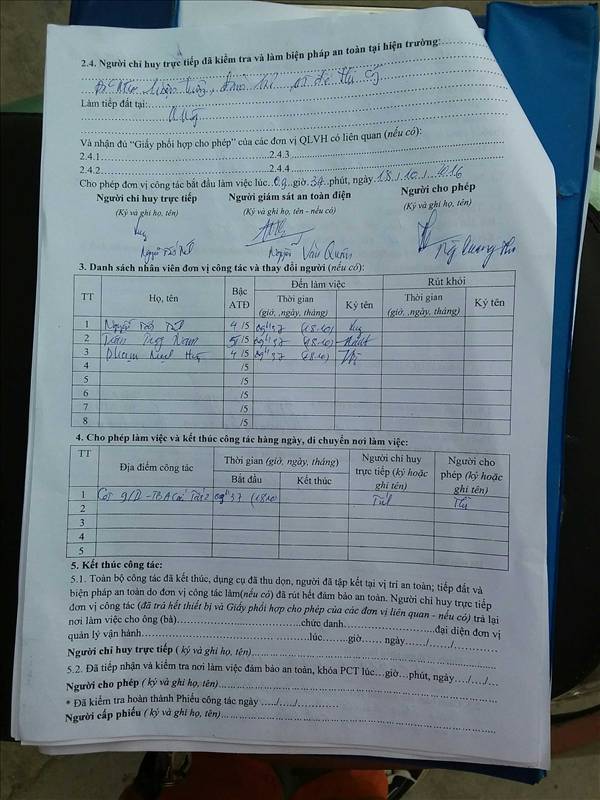 2.4. Người chỉ huy trực tiếp đã kiểm tra và làm biện pháp an toàn tại hiện trường:
Làm tiếp đất tại:
Và nhận đủ "Giấy phối hợp cho phép" của các đơn vị QLVH có liên quan (nếu có):
2.4.1 2.4.3
2.4.2 2.4.4
Cho phép đơn vị công tác bắt đầu làm việc lúc 09 giờ 37 phút, ngày 18/10/2016
Người chỉ huy trực tiếp Người giám sát an toàn điện Người cho phép
(Ký và ghi họ, tên) (Ký và ghi họ, tên - nếu có) (Ký và ghi họ, tên)
Nguyễn Văn Quân
3. Danh sách nhân viên đơn vị công tác và thay đổi người (nếu có):
TT Họ, tên Bậc ATĐ Đến làm việc Rút khỏi
Thời gian (giờ, ,ngày, tháng) Ký tên Thời gian (giờ, ,ngày, tháng) Ký tên
1 Nguyễn 4/5 09h37 (18.10)
2 Trần Nam 5/5 09h37 (18.10)
3 Phạm 4/5 09h37 (18.10)
4 /5
5 /5
6 /5
7 /5
8 /5
4. Cho phép làm việc và kết thúc công tác hàng ngày, di chuyển nơi làm việc:
TT Địa điểm công tác Thời gian (giờ, ngày, tháng) Người chỉ huy trực tiếp (ký hoặc ghi tên) Người cho phép (ký hoặc ghi tên)
Bắt đầu Kết thúc
1 09h37 (18.10)
2
3
4
5
5. Kết thúc công tác:
5.1. Toàn bộ công tác đã kết thúc, dụng cụ đã thu dọn, người đã tập kết tại vị trí an toàn; tiếp đất và
biện pháp an toàn do đơn vị công tác làm(nếu có) đã rút hết đảm bảo an toàn. Người chỉ huy trực tiếp
đơn vị công tác (đã trả hết thiết bị và Giấy phối hợp cho phép của các đơn vị liên quan - nếu có) trả lại
nơi làm việc cho ông (bà)……chức danh……đại diện đơn vị
quản lý vận hành……lúc……giờ…… ngày……/……/……
Người chỉ huy trực tiếp ( ký và ghi họ, tên)
5.2. Đã tiếp nhận và kiểm tra nơi làm việc đảm bảo an toàn, khóa PCT lúc…giờ…phút, ngày…/…/…
Người cho phép ( ký và ghi họ, tên)
* Đã kiểm tra hoàn thành Phiếu công tác ngày …../…./…………
Người cấp phiếu ( ký và ghi họ, tên)